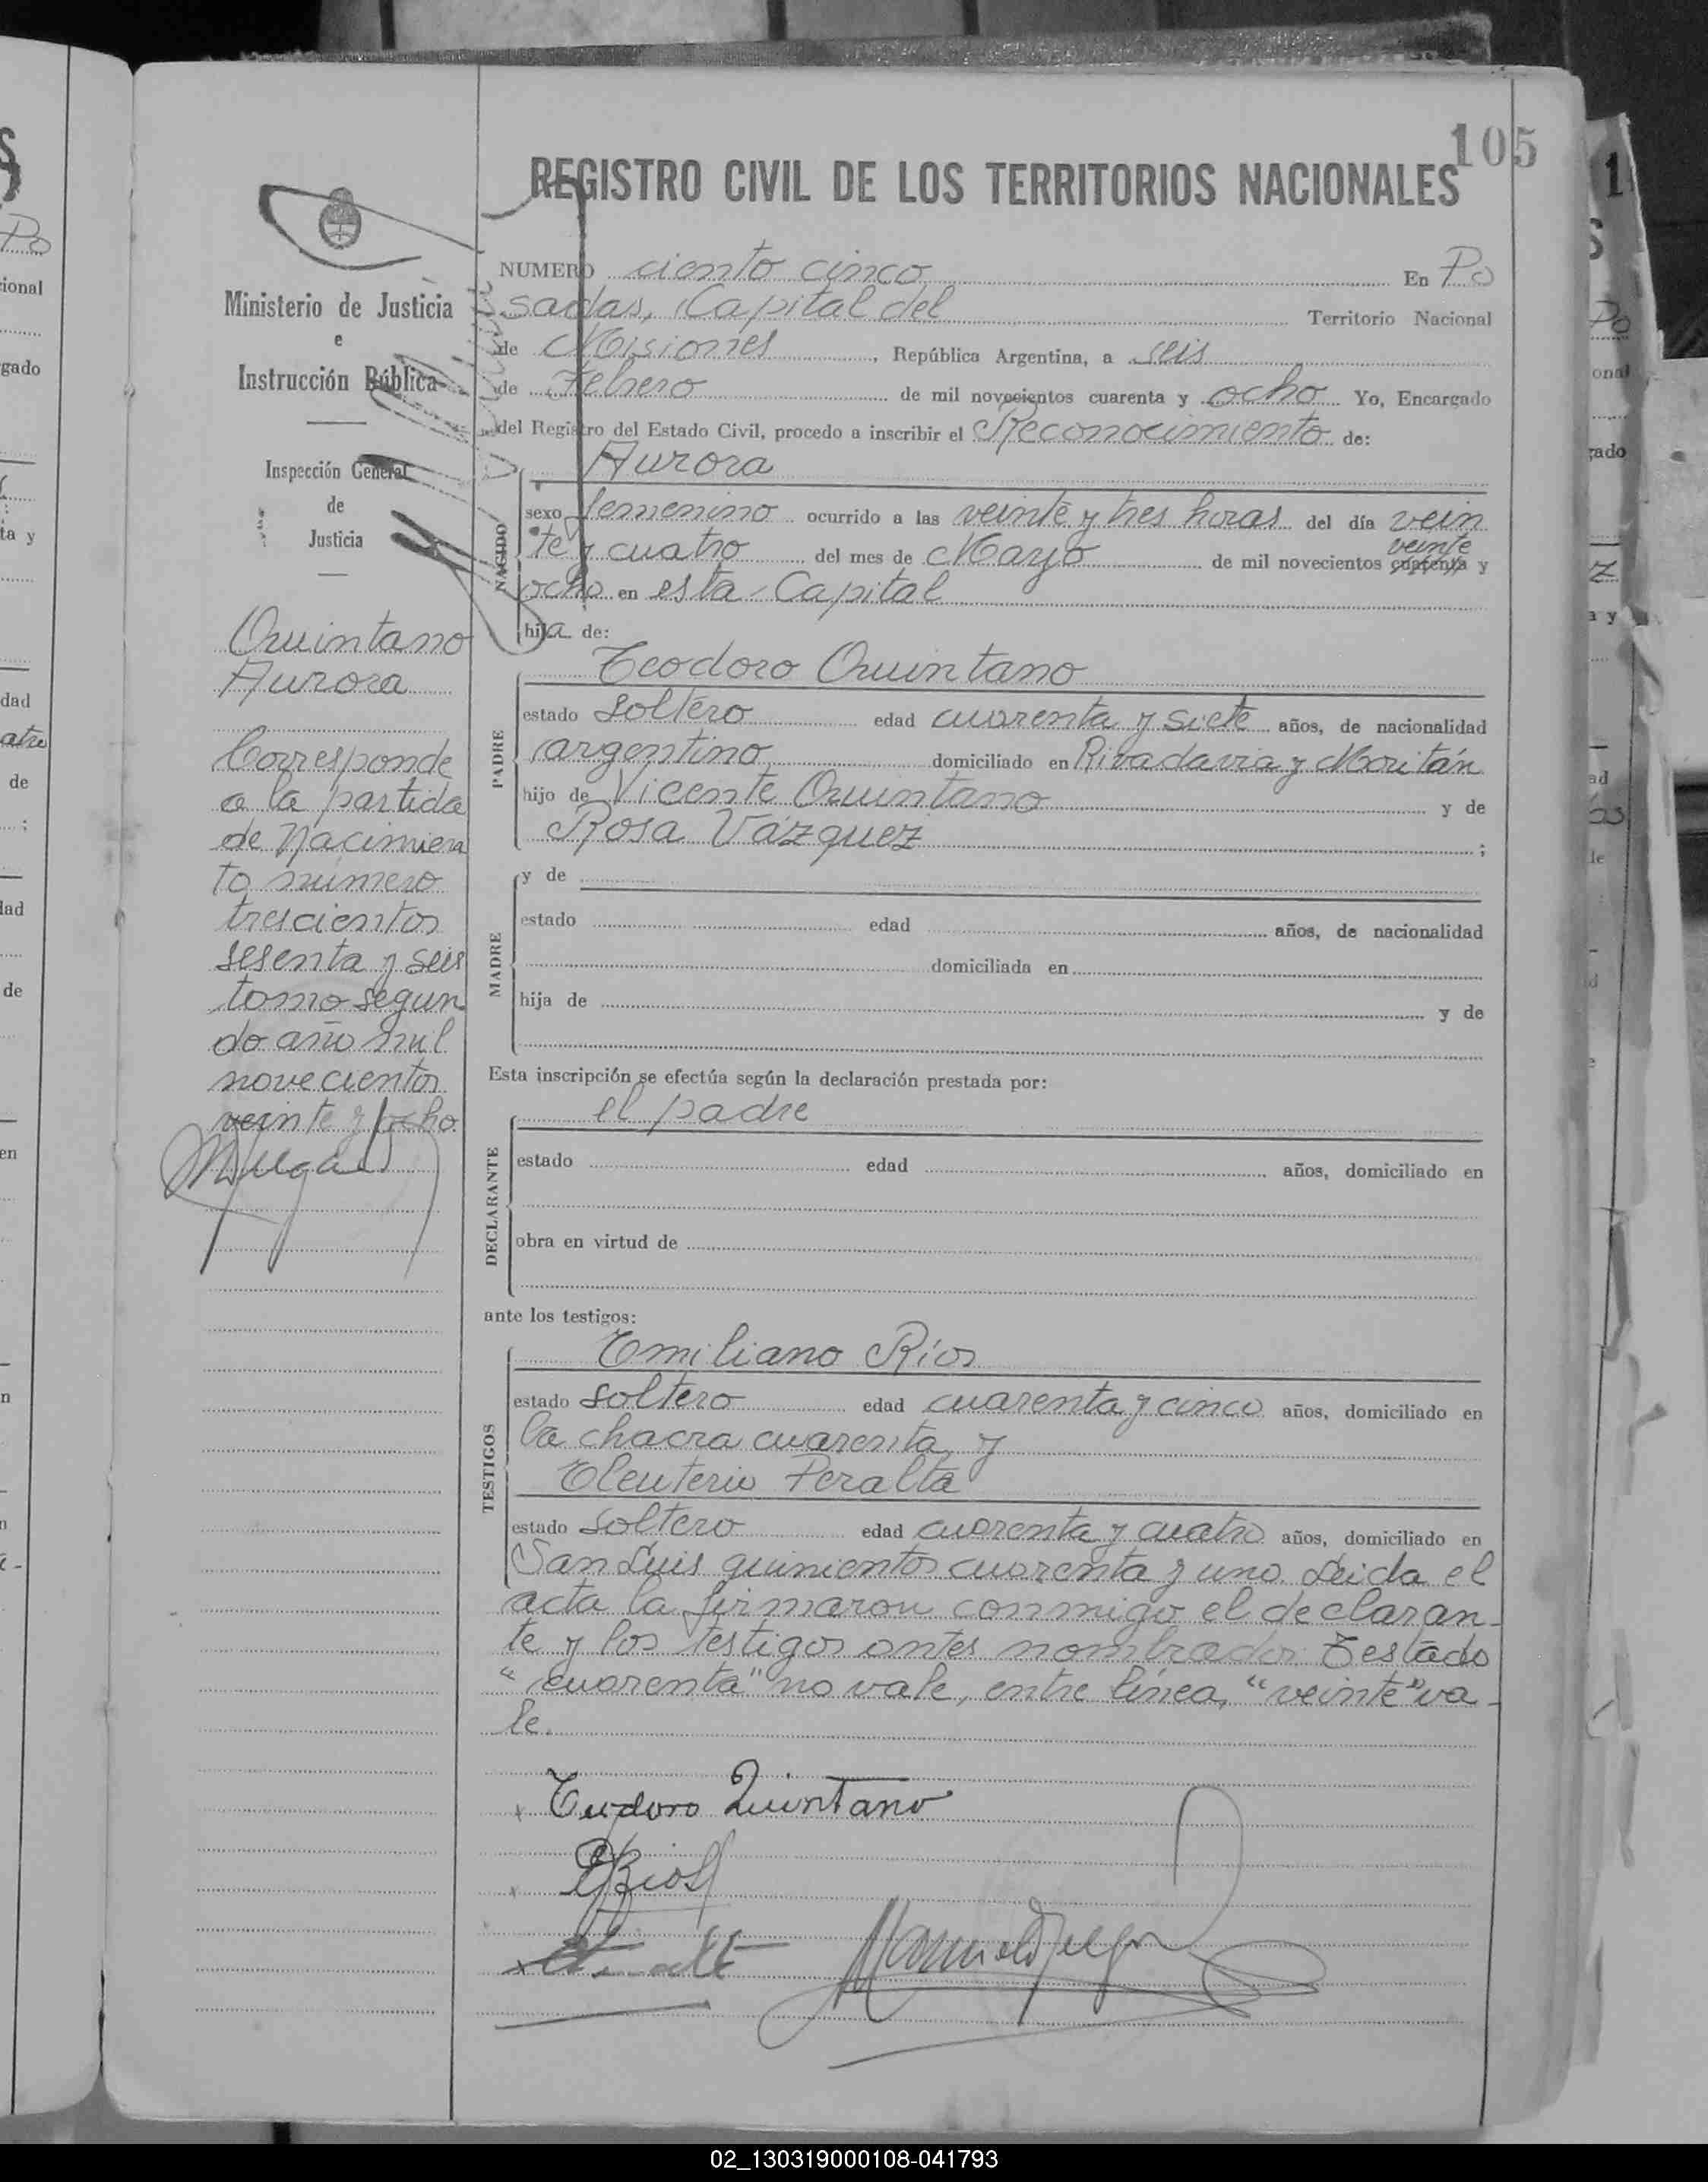 105
REGISTRO CIVIL DE LOS TERRITORIOS NACIONALES
NUMERO ciento cinco En Po
sadas, Capital del Territorio Nacional
de Misiones, República Argentina, a seis
de Febrero de mil novecientos cuarenta y ocho Yo, Encargado
del Registro del Estado Civil, procedo a inscribir el Reconocimiento de:
Ministerio de Justicia
e
Instrucción Pública
Inspección General
de
Justicia
Quintano
Aurora
Corresponde
a la partida
de Nacimien
to número
trescientos
sesenta y seis
tomo segun
do año mil
novecientos
veinte y ocho
NACIDO
Aurora
sexo femenino ocurrido a las veinte y tres horas del día vein
te y cuatro del mes de Mayo de mil novecientos cuarenta veinte y
ocho en esta Capital
hija de:
PADRE
Teodoro Quintano
estado soltero edad cuarenta y siete años, de nacionalidad
argentino domiciliado en Rivadavia y Moritán
hijo de Vicente Quintano y de
Rosa Vázquez ;
MADRE
y de
estado edad años, de nacionalidad
domiciliada en
hija de y de
Esta inscripción se efectúa según la declaración prestada por:
DECLARANTE
el padre
estado edad años, domiciliado en
obra en virtud de
ante los testigos:
TESTIGOS
Emiliano Ríos
estado soltero edad cuarenta y cinco años, domiciliado en
la chacra cuarenta, y
Eleuterio Peralta
estado soltero edad cuarenta y cuatro años, domiciliado en
San Luis quinientos cuarenta y uno. Leida el
acta la firmaron conmigo el declaran-
te y los testigos antes nombrados. Testado
"cuarenta" no vale, entre línea, "veinte" va-
le.
Teodoro Quintano
ERios
02_130319000108-041793